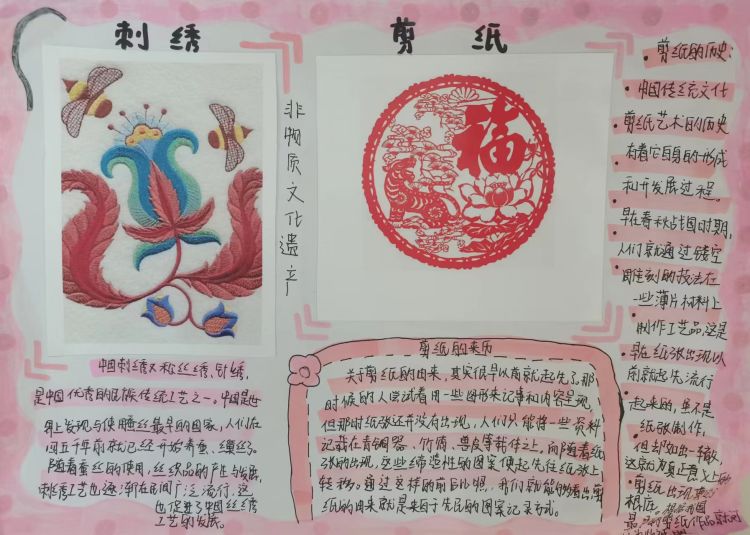 刺绣
剪纸
非物质文化遗产
福
中国刺绣又称丝绣、针绣,
是中国优秀的民族传统工艺之一。中国是世
界上发现与使用蚕丝最早的国家,人们在
四五千年前就已经开始养蚕、缫丝了。
随着蚕丝的使用,丝织品的产生与发展,
刺绣工艺也逐渐在民间广泛流行,这
也促进了中国丝绣
工艺的发展。
剪纸的来历
关于剪纸的由来,其实很早以前就起先了,那
时候的人尝试着用一些图形来记事和内容呈现,
但那时纸张还并没有出现,人们只能将一些资料
记载在青铜器、竹简、兽皮等载体之上,而随着纸
张的出现,这些缔造性的图案便起先往纸张上
转移。通过这样的前后比照,我们就能够看出剪
纸的由来就是来自于先民的图案记录方式。
剪纸的历史:
中国传统文化
剪纸艺术的历史
有着它自身的形成
和开发展过程。
早在春秋战国时期,
人们就通过镂空
雕刻的技法在
一些薄片材料上
制作工艺品,这是
早在纸张出现以
前就起先流行
起来的,虽不是
纸张制作,
但却如出一辙,
这为真正意义上的
剪纸出现
根底。
最
剪纸作品